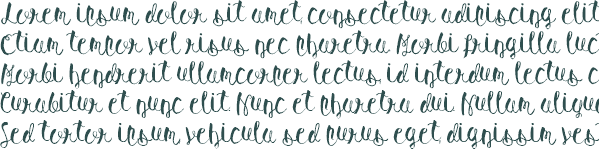 Lorem ipsum dolor sit amet, consectetur adipiscing elit
Etiam tempor vel risus nec pharetra Morbi fringilla luc
Morbi hendrerit ullamcorper lectus, id interdum lectus c
Curabitur et nunc elit. Nunc et pharetra dui Nullam alique
Sed tortor ipsum vehicula sed purus eget, dignissim ves